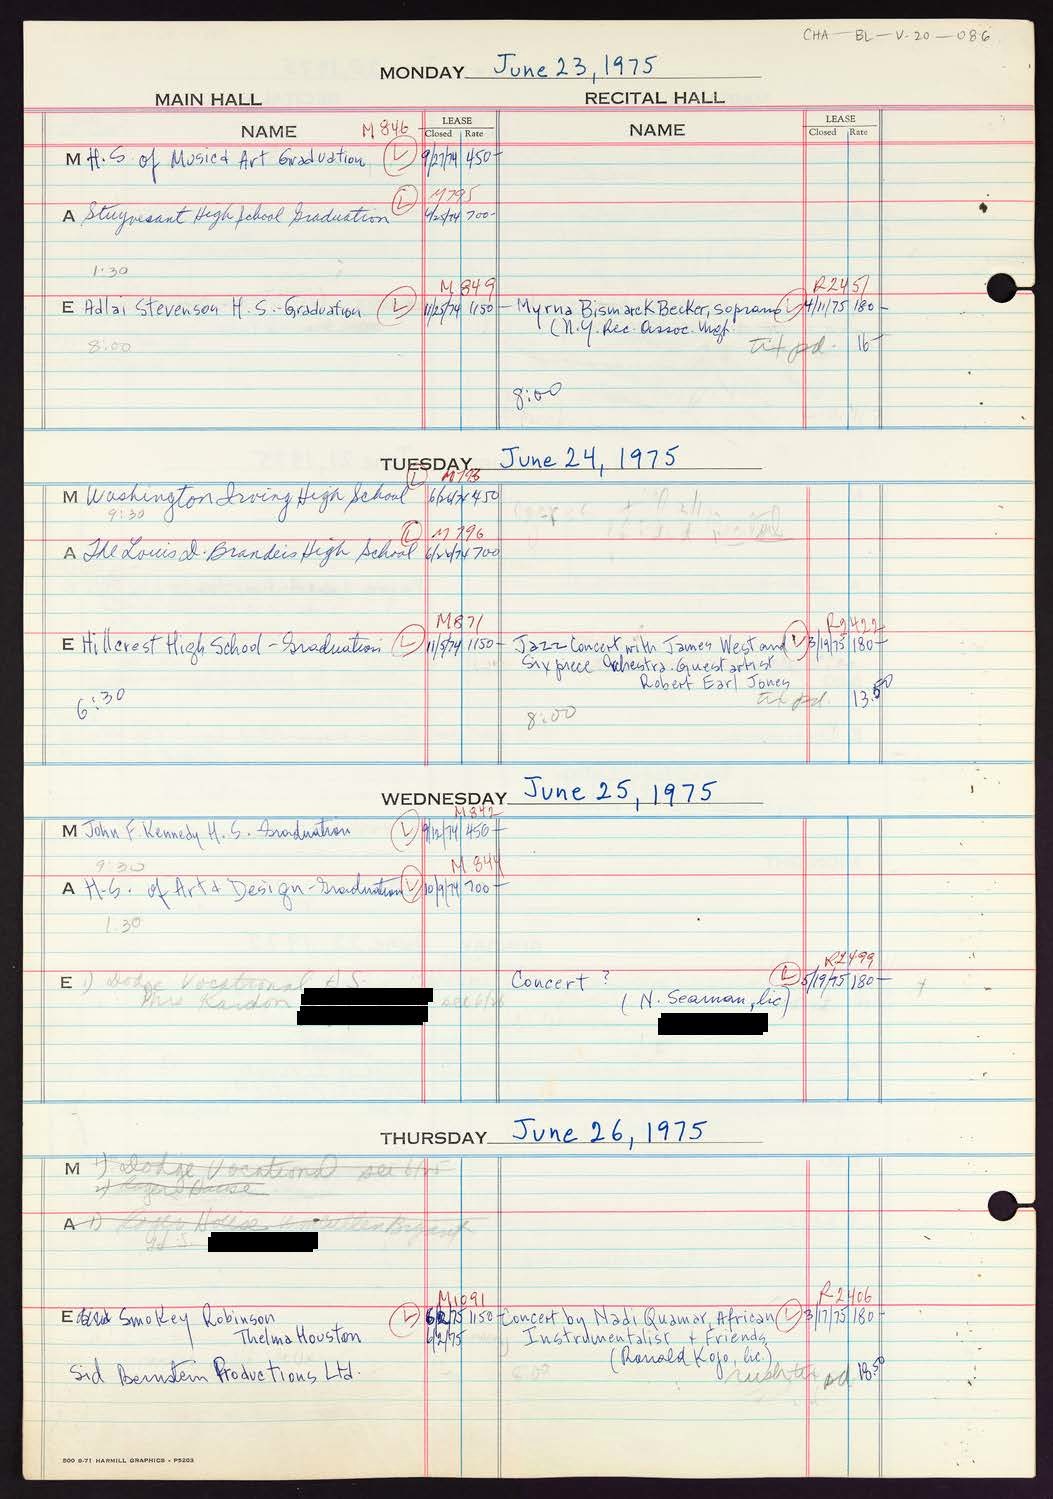 CHA-BL-V-20-086
MONDAY June 23, 1975
MAIN HALL
RECITAL HALL
NAME M846 LEASE Closed Rate
NAME LEASE Closed Rate
M H.S. of Music & Art Graduation L 9/27/74 450-
L M795
A Stuyvesant High School Graduation 6/25/74 700-
1:30
M849
E Adlai Stevenson H.S.-Graduation L 11/25/74 1150-
8:00
R2451
Myrna Bismarck Becker, soprano L 4/11/75 180-
(N.Y. Rec. Assoc. mgt.
tix pd. 16-
8:00
TUESDAY June 24, 1975
L M793
M Washington Irving High School 6/26/74 450
9:30
L M796
A The Louis D. Brandeis High School 6/26/74 700
M871
E Hillcrest High School-Graduation L 11/5/74 1150-
6:30
R2422
Jazz Concert with James West and L 3/19/75 180-
Six piece Orchestra. Guest artist
Robert Earl Jones
tix pd. 13.50
8:00
WEDNESDAY June 25, 1975
M842
M John F. Kennedy H.S. Graduation L 9/12/74 450-
9:30
M844
A H.S. of Art & Design-Graduation L 10/9/74 700-
1:30
E 1) Dodge Vocational H.S.
Mrs Kardon see 6/26
R2499
Concert? L 5/19/75 180-
(N. Seaman, lic)
THURSDAY June 26, 1975
M 1) Dodge Vocational see 6/25
2) Roger House
A 1) Roger House
M1091
E Smokey Robinson L 6/2/75 1150-
Thelma Houston 6/2/75
Sid Bernstein Productions Ltd.
R2406
Concert by Nadi Quamar, African L 3/17/75 180-
Instrumentalist & Friends
(Ronald Kojo, lic.)
rush tix pd 18.50
500 8-71 HARMILL GRAPHICS - P5203